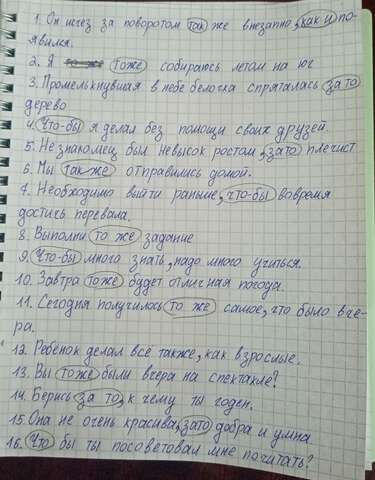 1. Он исчез за поворотом так же внезапно, как и по-
явился.
2. Я тоже собираюсь летом на юг
3. Промелькнувшая в небе белочка спряталась за то
дерево
4. Что-бы я делал без помощи своих друзей.
5. Незнакомец был невысок ростом, зато плечист
6. Мы так же отправились домой.
7. Необходимо выйти раньше, что-бы вовремя
достичь перевала.
8. Выполни то же задание
9. Что-бы много знать, надо много учиться.
10. Завтра тоже будет отлисная погода.
11. Сегодня получилось то же самое, что было вче-
ра.
12. Ребёнок делал всё также, как взрослые.
13. Вы тоже были вчера на спектакле?
14. Берись за то, к чему ты годен.
15. Она не очень красива, зато добра и умна
16. Что бы ты посоветовал мне почитать?